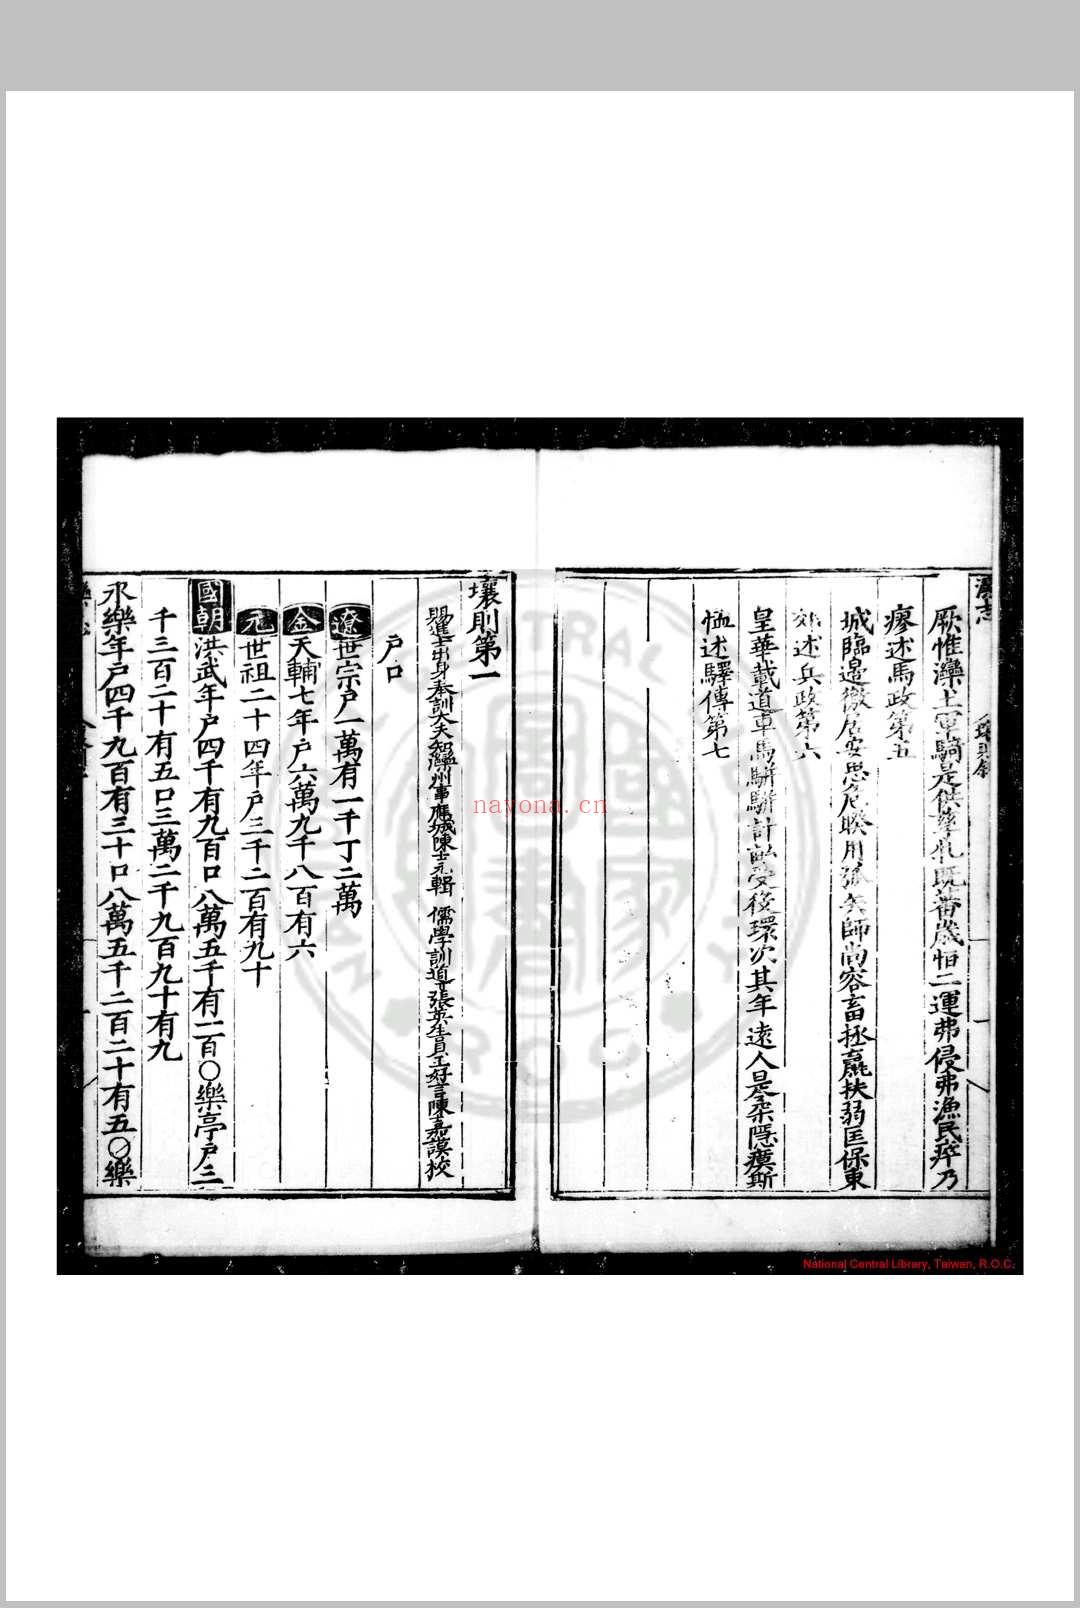 厥惟灤土軍騎是供孳牝既蕃歲怕二運弗侵弗漁民瘁乃
瘳述馬政第五
城臨邊徼居安思危睽用弧矢師尚容畜拯羸扶弱匡保東
郊述兵政第六
皇華載道車馬駢駢計畝受役環次其年遠人是柔隱瘼斯
恤述驛傳第七
壤則第一
賜進士出身奉訓大夫知灤州事應城陳士元輯 儒學訓導張英生員王好言陳嘉謨校
戶口
遼世宗戶一萬有一千丁二萬
金天輔七年戶六萬九千八百有六
元世祖二十四年戶三千二百有九十
國朝洪武年戶四千有九百口八萬五千有二百○樂亭戶二
千三百二十有五口三萬二千九百九十有九
永樂年戶四千九百有三十口八萬五千二百二十有五○樂
nayona.cn
National Central Library, Taiwan, R.O.C.